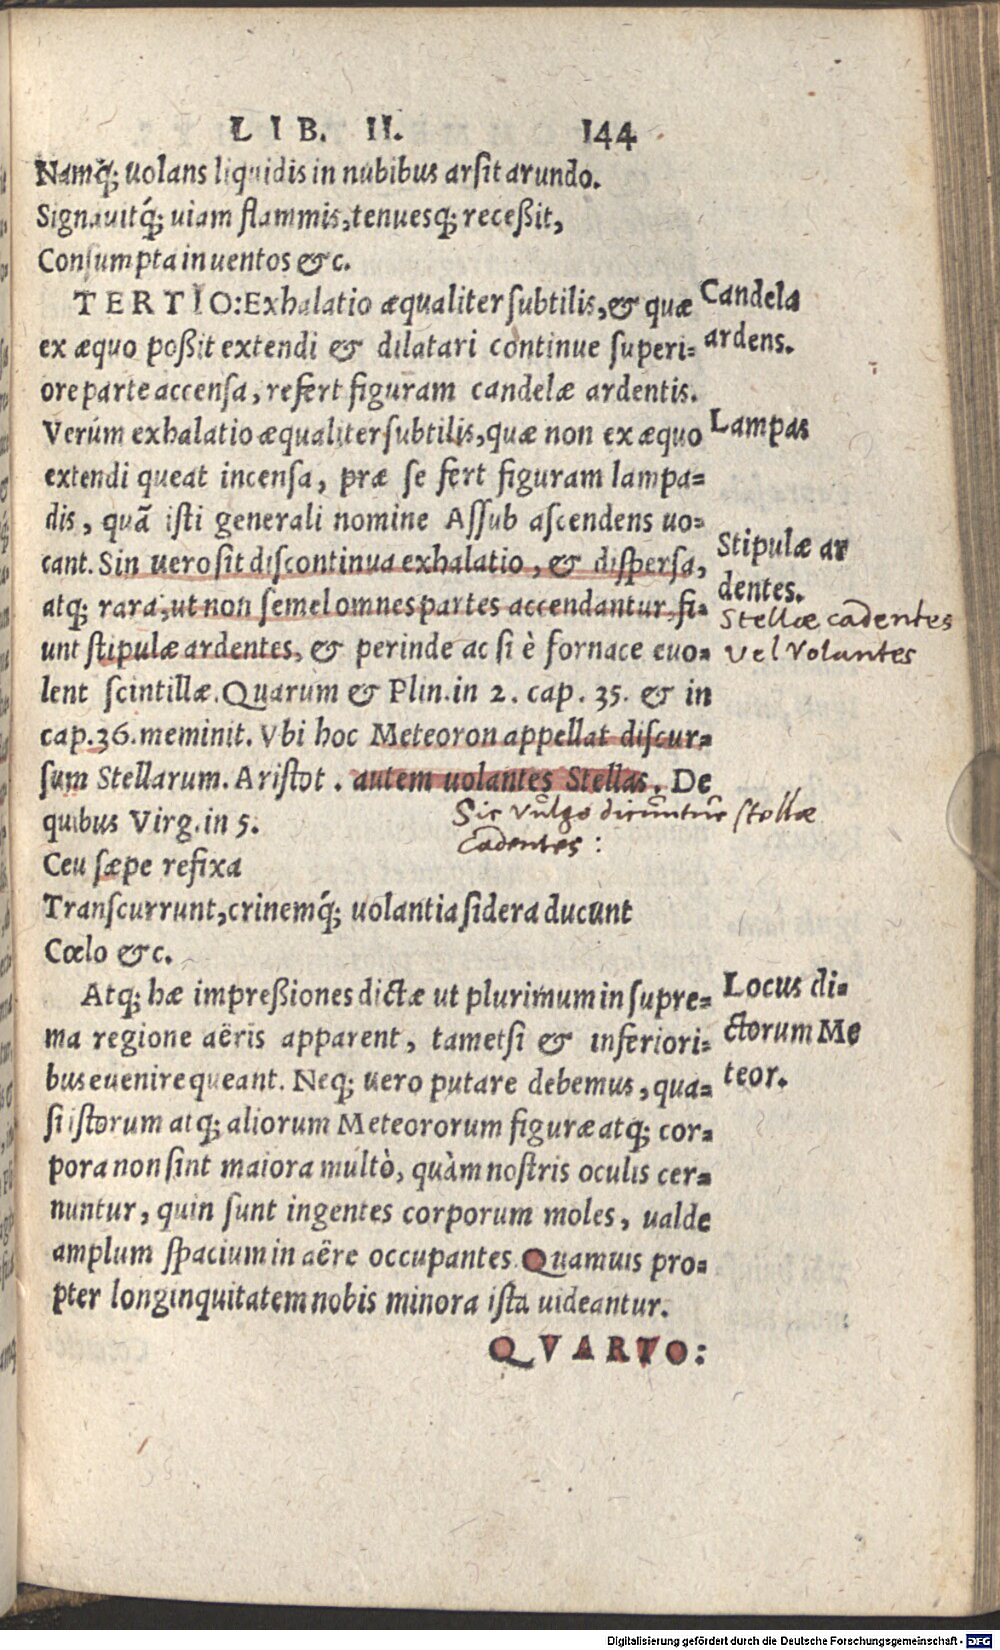 LIB. II. 144
Namq́; uolans liquidis in nubibus arsit arundo.
Signauitq́; uiam flammis, tenuesq; receßit,
Consumpta in uentos &c.
TERTIO: Exhalatio æqualiter subtilis, & quæ
Candela
ex æquo poßit extendi & dilatari continue superi=
ardens.
ore parte accensa, refert figuram candelæ ardentis.
Verùm exhalatio æqualiter subtilis, quæ non ex æquo
Lampas
extendi queat incensa, præ se fert figuram lampa=
dis, quã isti generali nomine Assub ascendens uo=
cant. Sin uero sit discontinua exhalatio, & dispersa,
Stipulæ ar
atq; rara, ut non semel omnes partes accendantur, fi=
dentes.
Stellæ cadentes
unt stipulæ ardentes, & perinde ac si è fornace euo=
vel Volantes
lent scintillæ. Quarum & Plin. in 2. cap. 35. & in
cap. 36. meminit. Vbi hoc Meteoron appellat discur=
sum Stellarum. Aristot. autem uolantes Stellas. De
Sic vulgo dicuntur stellæ
quibus Virg. in 5.
cadentes:
Ceu sæpe refixa
Transcurrunt, crinemq́; uolantia sidera ducunt
Cœlo &c.
Atq; hæ impreßiones dictæ ut plurimum in supre=
Locus di=
ma regione aëris apparent, tametsi & inferiori=
ctorum Me
bus euenire queant. Neq; uero putare debemus, qua=
teor.
si istorum atq; aliorum Meteororum figuræ atq; cor=
pora non sint maiora multò, quàm nostris oculis cer=
nuntur, quin sunt ingentes corporum moles, ualde
amplum spacium in aëre occupantes. Quamuis pro=
pter longinquitatem nobis minora ista uideantur.
QVARTO:
Digitalisierung gefördert durch die Deutsche Forschungsgemeinschaft - DFG